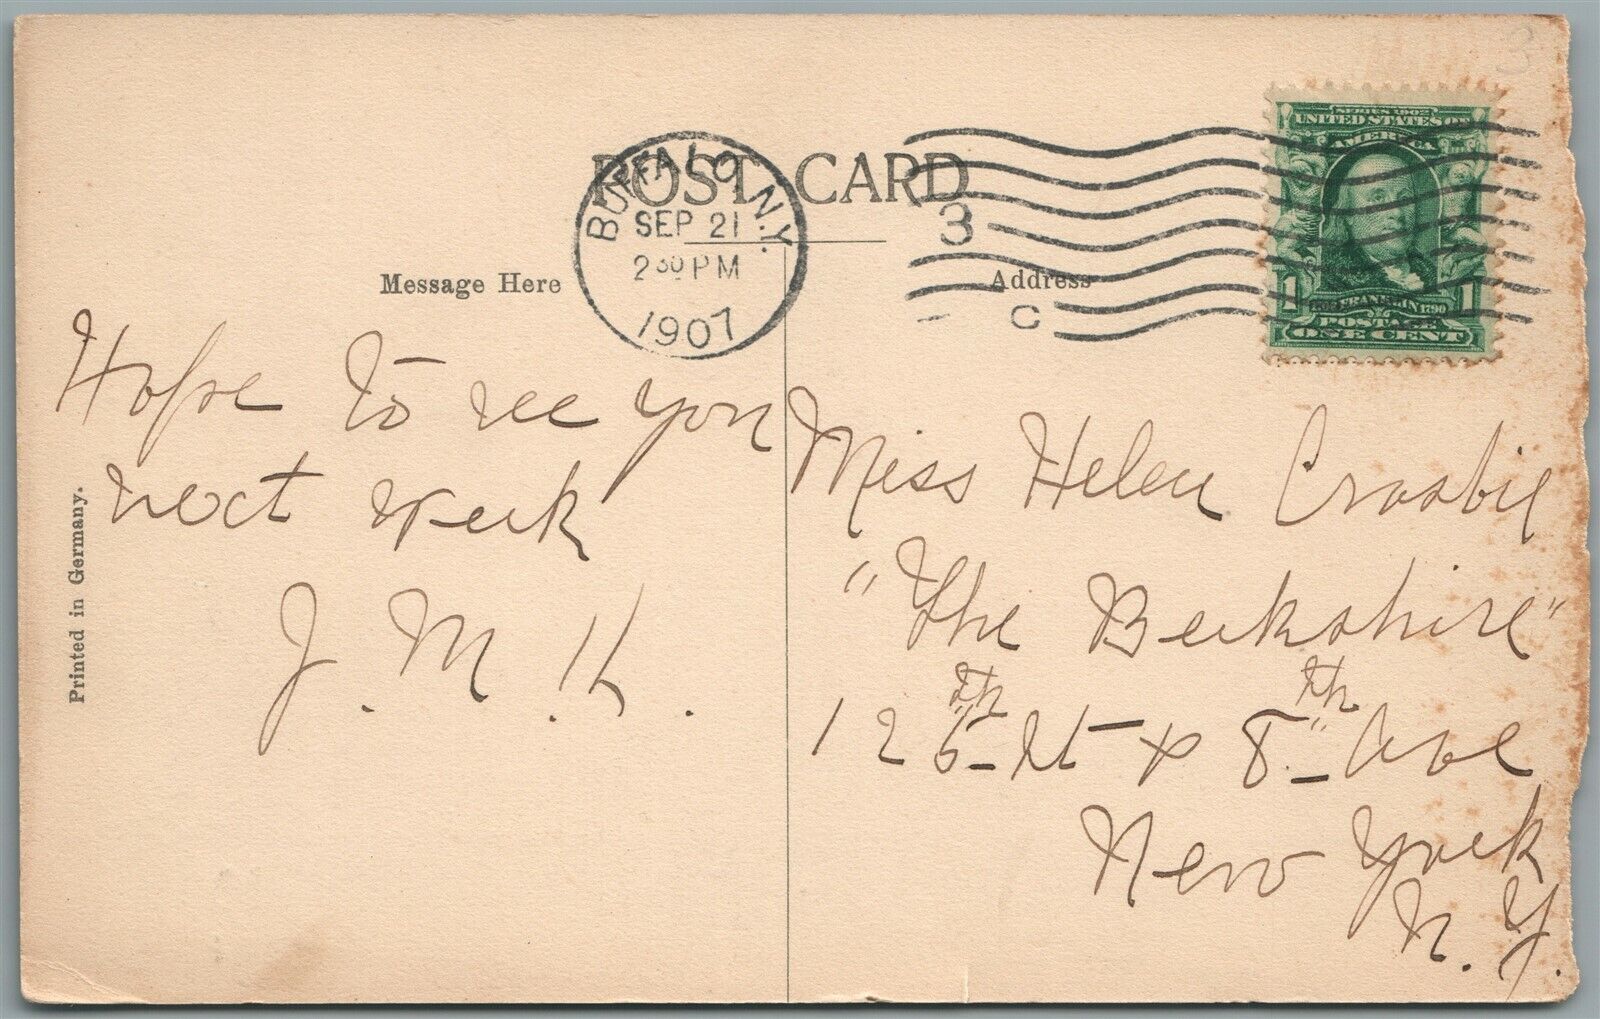 POST CARD
BUFFALO, N.Y.
SEP 21
2 30 PM
1907
3
C
SERIES 1902
UNITED STATES OF
AMERICA
1 FRANKLIN 1790 1
POSTAGE
ONE CENT
3
Message Here
Address
Hope to see you
next week
J. M. K.
Miss Helen Crosbie
"The Berkshire"
125th St & 8th Ave
New York
N. Y.
Printed in Germany.